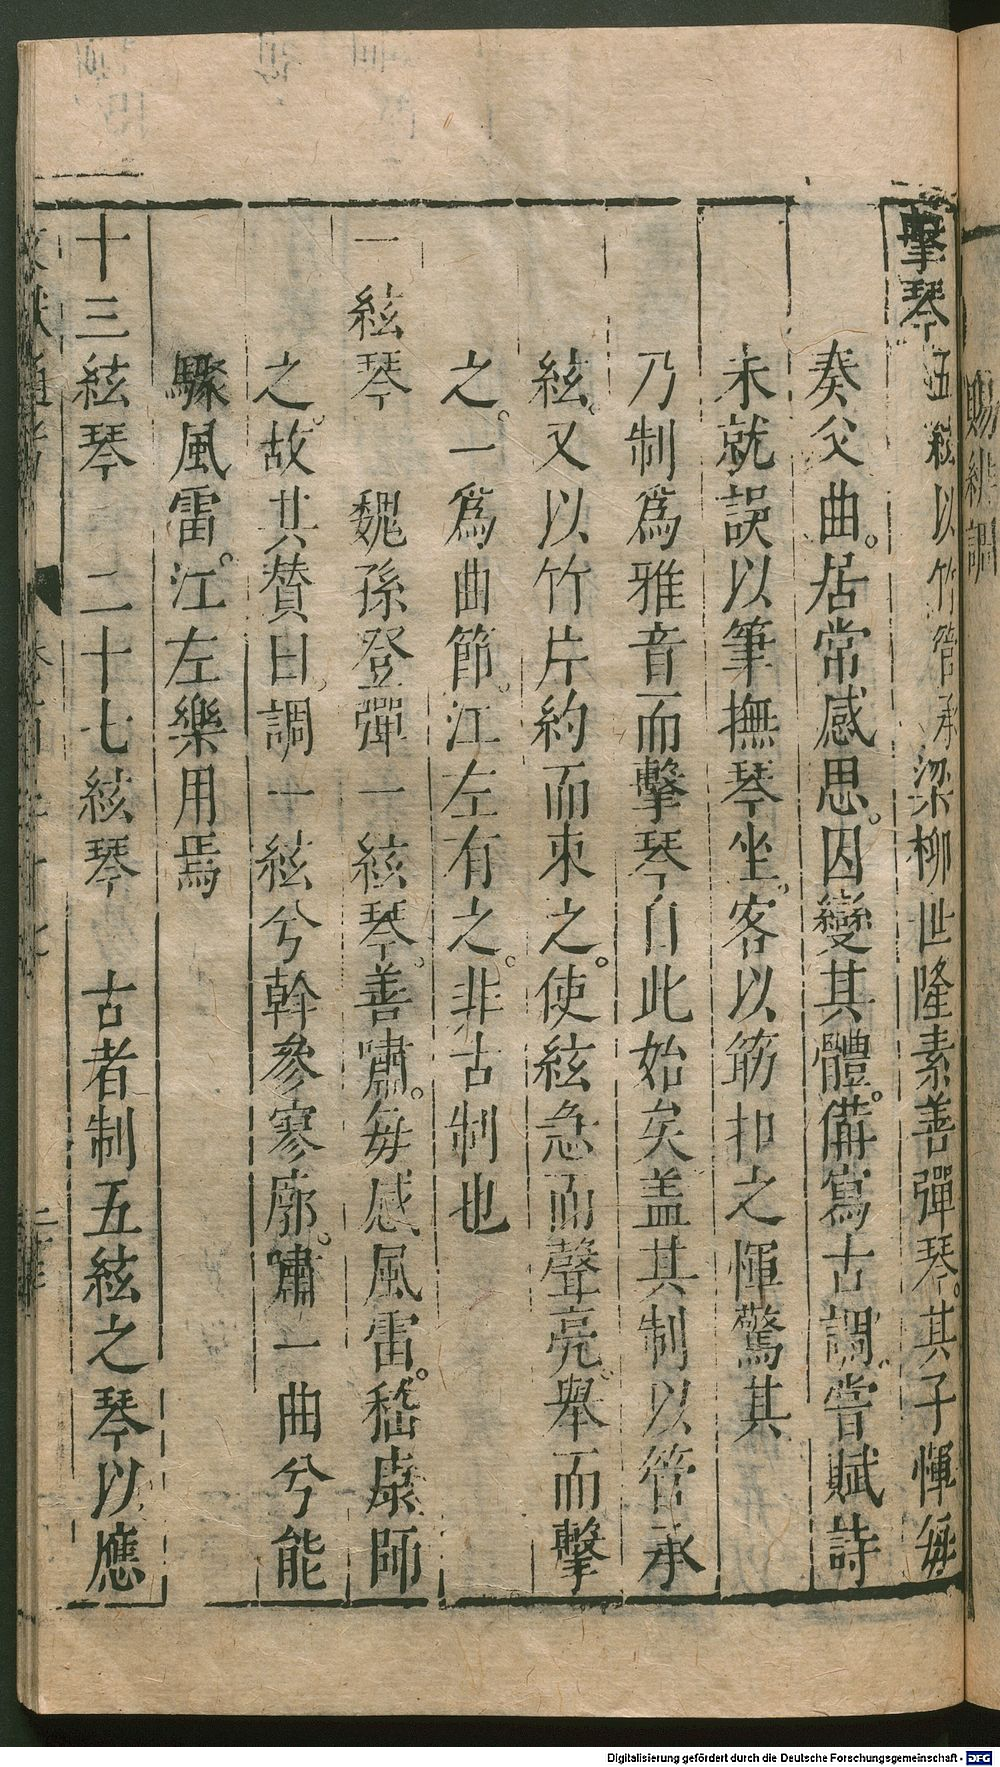 擊琴五絃以竹管承梁柳世隆素善彈琴。其子惲每
奏父曲。居常感思。因變其體。備寫古調。嘗賦詩
未就誤以筆撫琴坐。客以筯扣之惲驚其
乃制為雅音而擊琴自此始矣盖其制以管承
絃。又以竹片約而束之。使絃急而聲亮。舉而擊
之。一為曲節。江左有之。非古制也
一絃琴 魏孫登彈一絃琴。善嘯。每感風雷。嵇康師
之。故其賛曰。調一絃兮斡參寥廓。嘯一曲兮能
驟風雷。江左樂用焉
十三絃琴 二十七絃琴 古者制五絃之琴以應
Digitalisierung gefördert durch die Deutsche Forschungsgemeinschaft - DFG